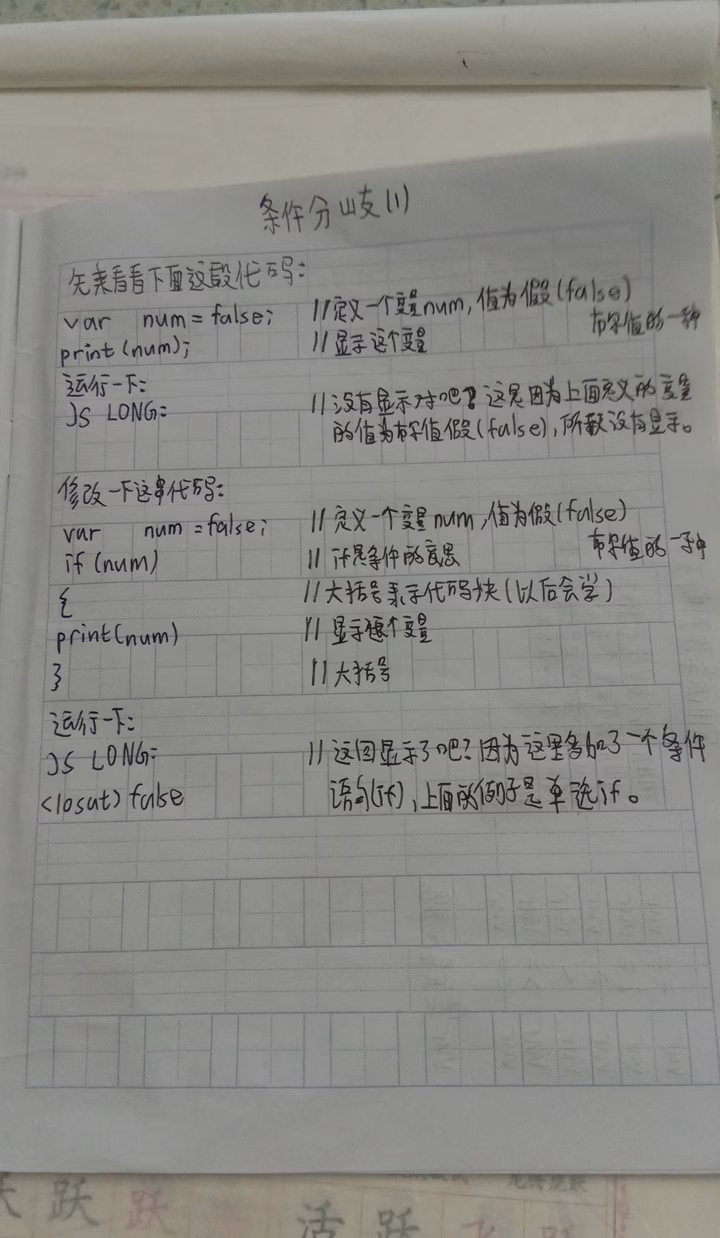 条件分岐(1)
先来看看下面这段代码:
var num = false; //定义一个变量num,值为假(false)
布尔值的一种
print(num); //显示这个变量
运行一下:
JS LONG: //没有显示对吧?这是因为上面定义的变量
的值为布尔值假(false),所以没有显示。
修改一下这串代码:
var num = false; //定义一个变量num,值为假(false)
布尔值的一种
if(num) //if是条件的意思
{ //大括号表示代码块(以后会学)
print(num) //显示这个变量
} //大括号
运行一下:
JS LONG: //这回显示了吧?因为这里多加了一个条件
<losut)false 语句(if),上面的例子是单选if。
活 跃
跃 跃